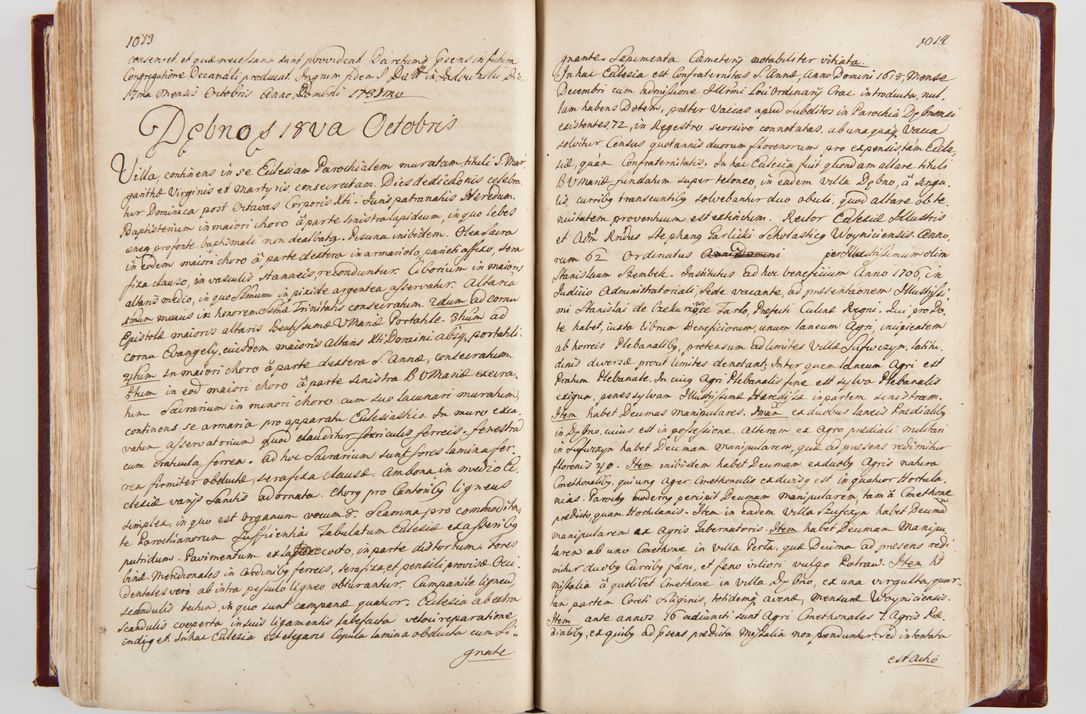 1013
consenset, et quæ necessaria sunt provideat
Congregatione Decanali producat. In quorum fidem
mensis Octobris Anno Domini
Dębno 18va Octobris
Villa, continens in se Ecclesiam Parochialem muratam, tituli S. Mar
garithæ Virginis et Martyris consecratam. Dies dedicationis celebra
tur Dominica post Octavas Corporis Xti. Juris patronatus Hæredum.
Baptisterium in maiori choro à parte sinistra lapideum, in quo lebes
æneq pro fonte baptismali non dealbatq. Piscina inibidem. Olea Sacra
in eodem maiori choro à parte dextera in armariolo, parieti affixo, sera
fixa clauso, in vasculis stanneis reconduntur. Ciborium in maioris
altaris medio, in quo Ssmum in pixide argentea asservatur. Altaria
1mum maius in honorem Ssmæ Trinitatis consecratum. 2dum ad cornu
Epistolæ maioris altaris Beatissimæ V Mariæ Portatile. 3tium ad
cornu Evangelij, eiusdem maioris altaris Xti Domini absq portatili.
4tum in maiori choro à parte dextera S Annæ, consecratum
5tum in eod maiori choro à parte sinistra B V Mariæ execra
tum. Sacrarium in minori choro cum suo lacunari muratum,
continens se armaria pro apparatu Ecclesiastico. In muro exca
vatum asservatorium quod clauditur forriculis ferreis. fenestra
cum crathula ferrea. Ad hoc Sacrarium sunt fores lamina fer
rea firmiter obductæ serafixa clausæ. Ambona in medio Ec
clesiæ varijs Sanctis adornata. Chorq pro Cantoribq ligneus
simplex, in quo est Organum vocum 8. Scamna pro commodita
te Parochianorum sufficientia Tabulatum Ecclesiæ ex asseribq
putridum. Pavimentum ex latere cocto, in parte distortum. Fores
binæ Meridionales in cardinibq ferreis, serafixa, et pensili provisæ Occi
dentales vero ab intra pessulo ligneo obturantur. Campanile ligneū,
scandulis tectum, in quo sunt campanæ quatuor. Ecclesia ab extra
scandulis cooperta in suis ligamentis labefacta veloci reparatione
indiget. In hac Ecclesia est elegans cupula lamina obducta cum Si
gnate
1014
gnante. Sepimenta Cæmeterij notabiliter vitiata.
In hac Ecclesia est Confraternitas S Annæ, Anno Domini 1613, Mense
Decembri cum admissione Illmi Loci Ordinarij Crac. introducta, nul
lam habens Dotem, præter Vaccas apud subditos in Parochia Dębnensi
existentes, 72, in Regestro seorsivo connotatas, ab una quaq Vacca
solvitur Census quotannis duorum florenorum, pro expensis tam Eccle
siæ, quàm Confraternitatis. In hac Ecclesia fuit quondam altare tituli
B V Mariæ fundatum super teloneo, in eadem villa Dębno, à singu
lis curribq transeuntibq solvebantur duo oboli, quod altare ob te
nuitatem proventuum est extinctum. Rector Ecclesiæ Illustris
et Adm Rndus Stephanq Garlicki Scholasticq Woyniciensis. Anno
rum 62 Ordinatus per Illustrissimum olim
Stanislaum Szembek. Institutus ad hoc beneficium Anno 1706, in
Judicio Administratoriali, Sede vacante, ad præsentationem Illustrissi
mi Stanislai de Czekarzowice Tarło, Præfecti Culinæ Regni. Qui pro Do
te habet, iuxta librum Beneficiorum, unum laneum Agri, incipientem
ab horreis Plebanalibq, protensum ad limites Villæ Sufczyn, latitu
dinis diversæ prout limites denotant; Inter quem laneum Agri est
Pratum Plebanale. In cuiq Agri Plebanalis fine est sylva Plebanalis
exigua, penes sylvam Illustrissimæ Hæredissæ in partem sinistram.
Item habet Decimas manipulares. Imam ex duobus laneis Prædialibq
in Dębno, cuius est in possessione. Alteram ex Agro prædiali militari
in Sufczyn habet Decimam manipularem, quæ ad præsens redimitur
florenis 20. Item inibidem habet Decimam ex duobq Agris natura
Cmethonalibq, qui unq Ager Cmethonalis exdivisq est in quatuor Hortula
nias. Parochq modernq percipit Decimam manipularem, tam à Cmethone
prædicto quam Hortulanis. Item in eadem villa Szufczyn habet Decimā
manipularem ex Agris Gubernatoris. Item habet Decimam Manipu
larem ab uno Cmethone in villa Perła, quæ Decima ad præsens redi
mitur duobq Curribq fæni, et fæno viliori vulgo Potraw. Item hēt
missalia à quolibet Cmethone in villa Dębno, ex una virgulta, quar
tam partem Coreti siliginis, totidemq avenæ, mensuræ Woyniciensis.
Item ante annos 16 adiuncti sunt Agri Cmethonales 7. Agris Præ
dialibq, ex quibq ad præsens prædicta Missalia non penduntur, sed intentata
est actio